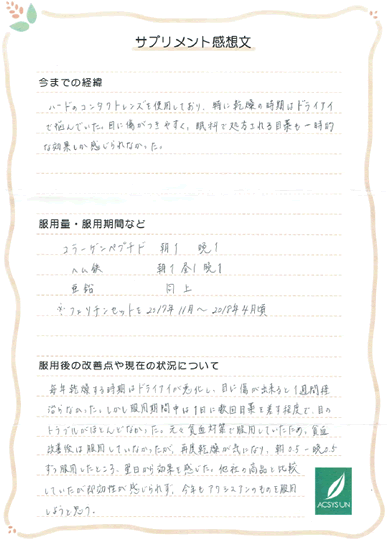 サプリメント感想文
今までの経緯
ハードのコンタクトレンズを使用しており、特に乾燥の時期はドライアイ
で悩んでいた。目に傷がつきやすく、眼科で処方される目薬も一時的
な効果しか感じられなかった。
服用量・服用期間など
コラーゲンペプチド 朝1 晩1
ヘム鉄 朝1 昼1 晩1
亜鉛 同上
フェリチンセットを2017年11月～2018年4月頃
服用後の改善点や現在の状況について
毎年乾燥する時期はドライアイが悪化し、目に傷が出来ると1週間程
治らなかった。しかし服用期間中は1日に数回目薬を差す程度で、目の
トラブルがほとんどなかった。元々貧血対策で服用していたため、貧血
改善後は服用していなかったが、再度乾燥が気になり、朝0.5－晩0.5
ずつ服用したところ、翌日から効果を感じた。他社の商品と比較
していたが即効性が感じられず、今年もアクシスアンのものを服用
しようと思う。
ACSYSUN